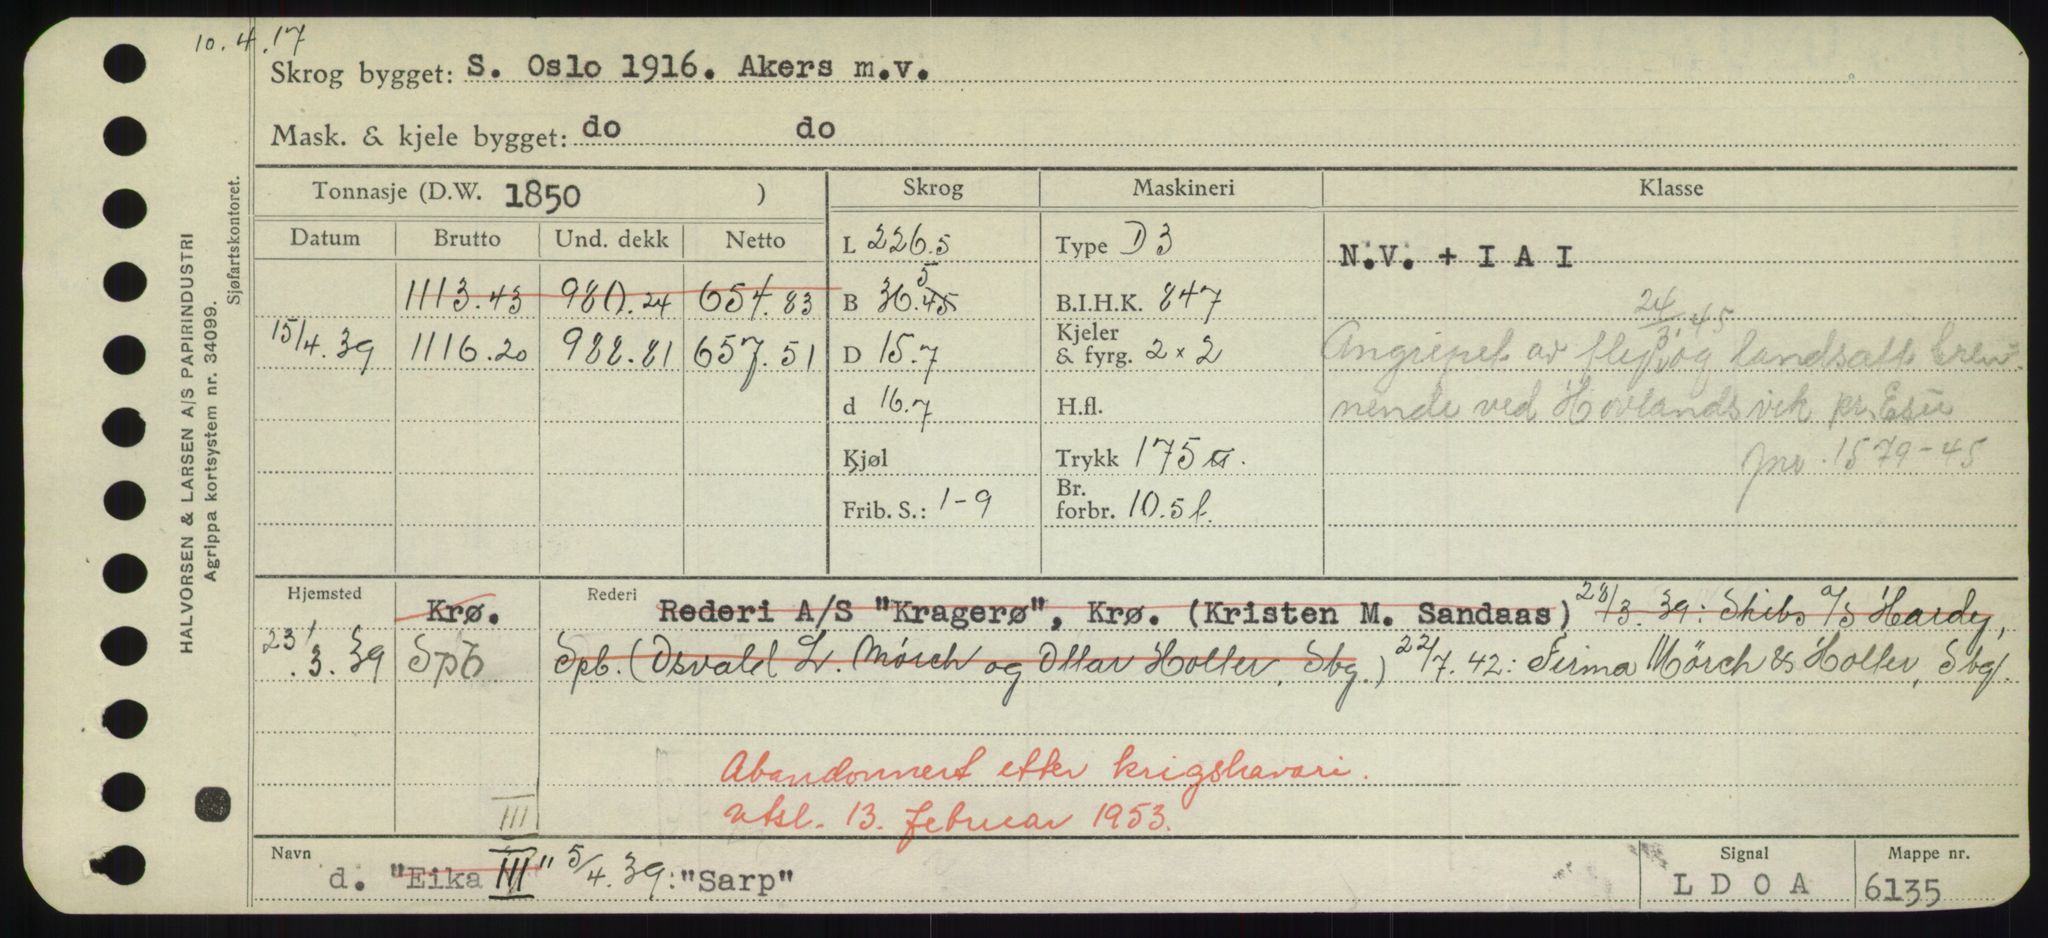 10.4.17
Skrog bygget: S. Oslo 1916. Akers m.v.
Mask. & kjele bygget: do do
HALVORSEN & LARSEN A/S PAPIRINDUSTRI
Agrippa kortsystem nr. 34099.
Sjøfartskontoret.
Tonnasje (D.W. 1850 ) Skrog Maskineri Klasse
Datum Brutto Und. dekk Netto L 226.5 Type D 3 N.V. + I A I
1113.43 980.24 654.83 B 36.45 5 B.I.H.K. 847
15/4.39 1116.20 988.81 657.51 D 15.7 Kjeler & fyrg. 2 × 2
d 16.7 H.fl.
Kjøl Trykk 175
Frib. S.: 1-9 Br. forbr. 10.5 t.
24/3.45
Angrepet av fly og landsatt bren-
nende ved Hovlandsvik pr.
Jnr. 1579-45
Hjemsted Krø. Rederi Rederi A/S "Kragerø", Krø. (Kristen M. Sandaas) 28/3.39: Skibs A/S Hardy,
23/3.39 Spb Spb. (Osvald L. Mørch og Ottar Holter, Sbg.) 22/7.42: Firma Mörch & Holter, Sbg.
Abandonnert etter krigshavari.
utsl. 13. februar 1953.
III
Navn d. "Eika III" 5/4.39: "Sarp" Signal L D O A Mappe nr. 6135